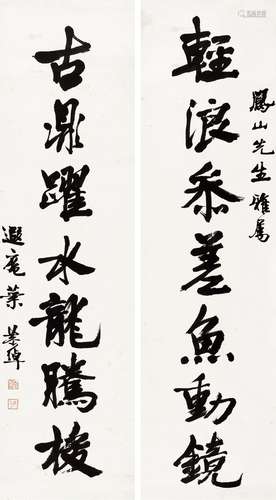 鳳山先生雅屬
輕浪參差魚動鏡
古鼎躍水龍騰梭
遐庵葉恭綽